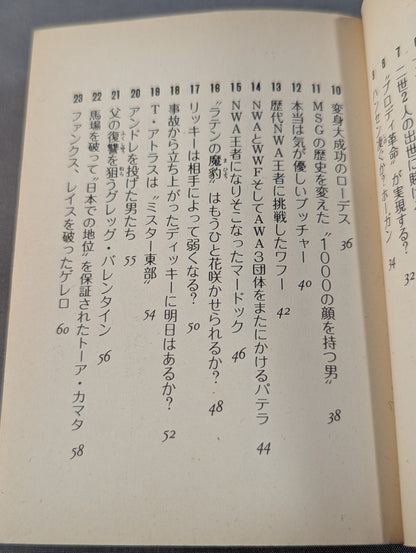 7 二世2人の出世に賭け
“ブロディ革命”が実現する? 32
ハンセン ホーガン 34
10 変身大成功のローデス 36
11 MSGの歴史を変えた“1000の顔を持つ男” 38
12 本当は気が優しいブッチャー 40
13 歴代NWA王者に挑戦したワフー 42
14 NWAとWWFそしてAWA3団体をまたにかけるパテラ 44
15 NWA王者になりそこなったマードック 46
16 “ラテンの魔豹”はもうひと花咲かせられるか? 48
17 リッキーは相手によって弱くなる? 50
18 事故から立ち上がったディッキーに明日はあるか? 52
19 T・アトラスは“ミスター東部” 54
20 アンドレを投げた男たち 55
21 父の復讐を狙うグレッグ・バレンタイン 56
22 馬場を破って“日本での地位”を保証されたトーア・カマタ 58
23 ファンクス、レイスを破ったゲレロ 60